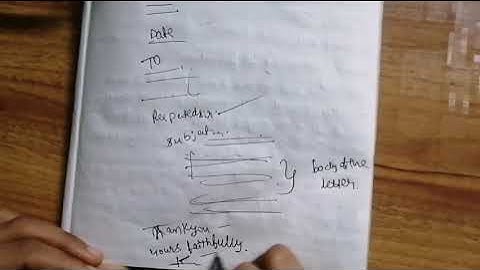 Date
TO
Repectedsir
Subject
body of the
letter
Thankyou
Yours faithfully